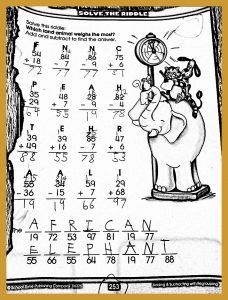 SOLVE THE RIDDLE
Solve this riddle:
Which land animal weighs the most?
Add and subtract to find the answer.
F N N C
54 84 86 75
+ 18 - 7 - 9 + 6
72 77 77 81
P E A H
35 48 28 82
29 + 7 - 9 - 4
55 19 78
T E H R
39 39 85 47
+ 49 + 16 - 7 + 6
88 55 78 53
A A L I
55 34 59 29
- 36 - 15 + 7 + 68
19 19 66 97
A F R I C A N
19 72 53 97 81 19 77
E L E P H A N T
55 66 55 78 19 77 88
© School Zone Publishing Company
253
Adding & Subtracting with Regrouping